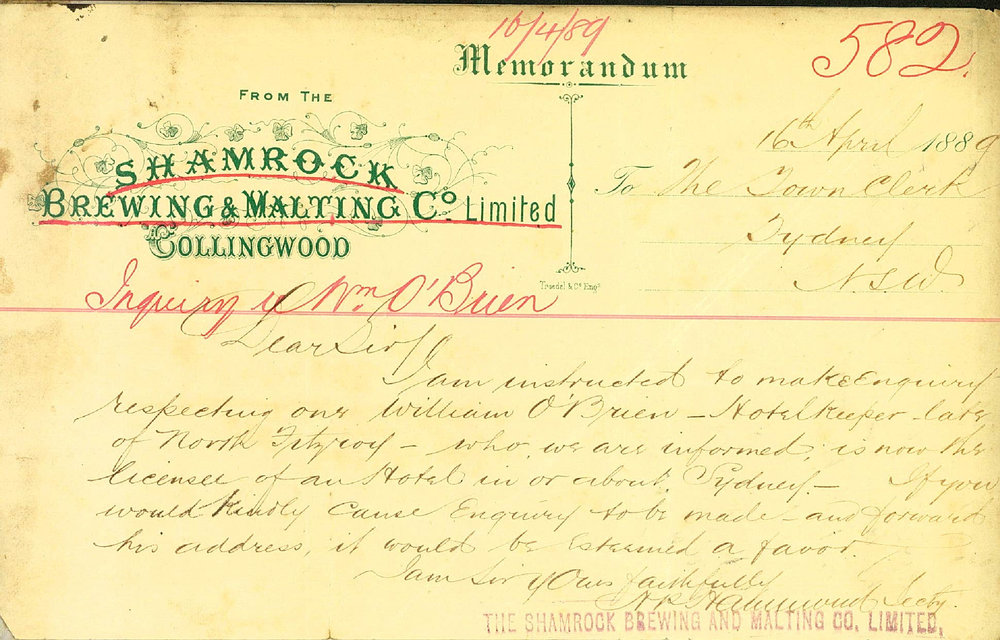 16/4/89
582.
Memorandum
FROM THE
SHAMROCK
BREWING & MALTING Co. Limited
COLLINGWOOD
Troedel & Co. Engrs
16th April 1889
To The Town Clerk
Sydney
N.S.W.
Inquiry re Wm O'Brien
Dear Sir,
I am instructed to make Enquiry
respecting one William O'Brien - Hotelkeeper - late
of North Fitzroy - who, we are informed, is now the
licensee of an Hotel in or about Sydney - If you
would kindly cause Enquiry to be made - and forward
his address, it would be Esteemed a favor.
I am Sir yours faithfully
Secty.
THE SHAMROCK BREWING AND MALTING CO. LIMITED.